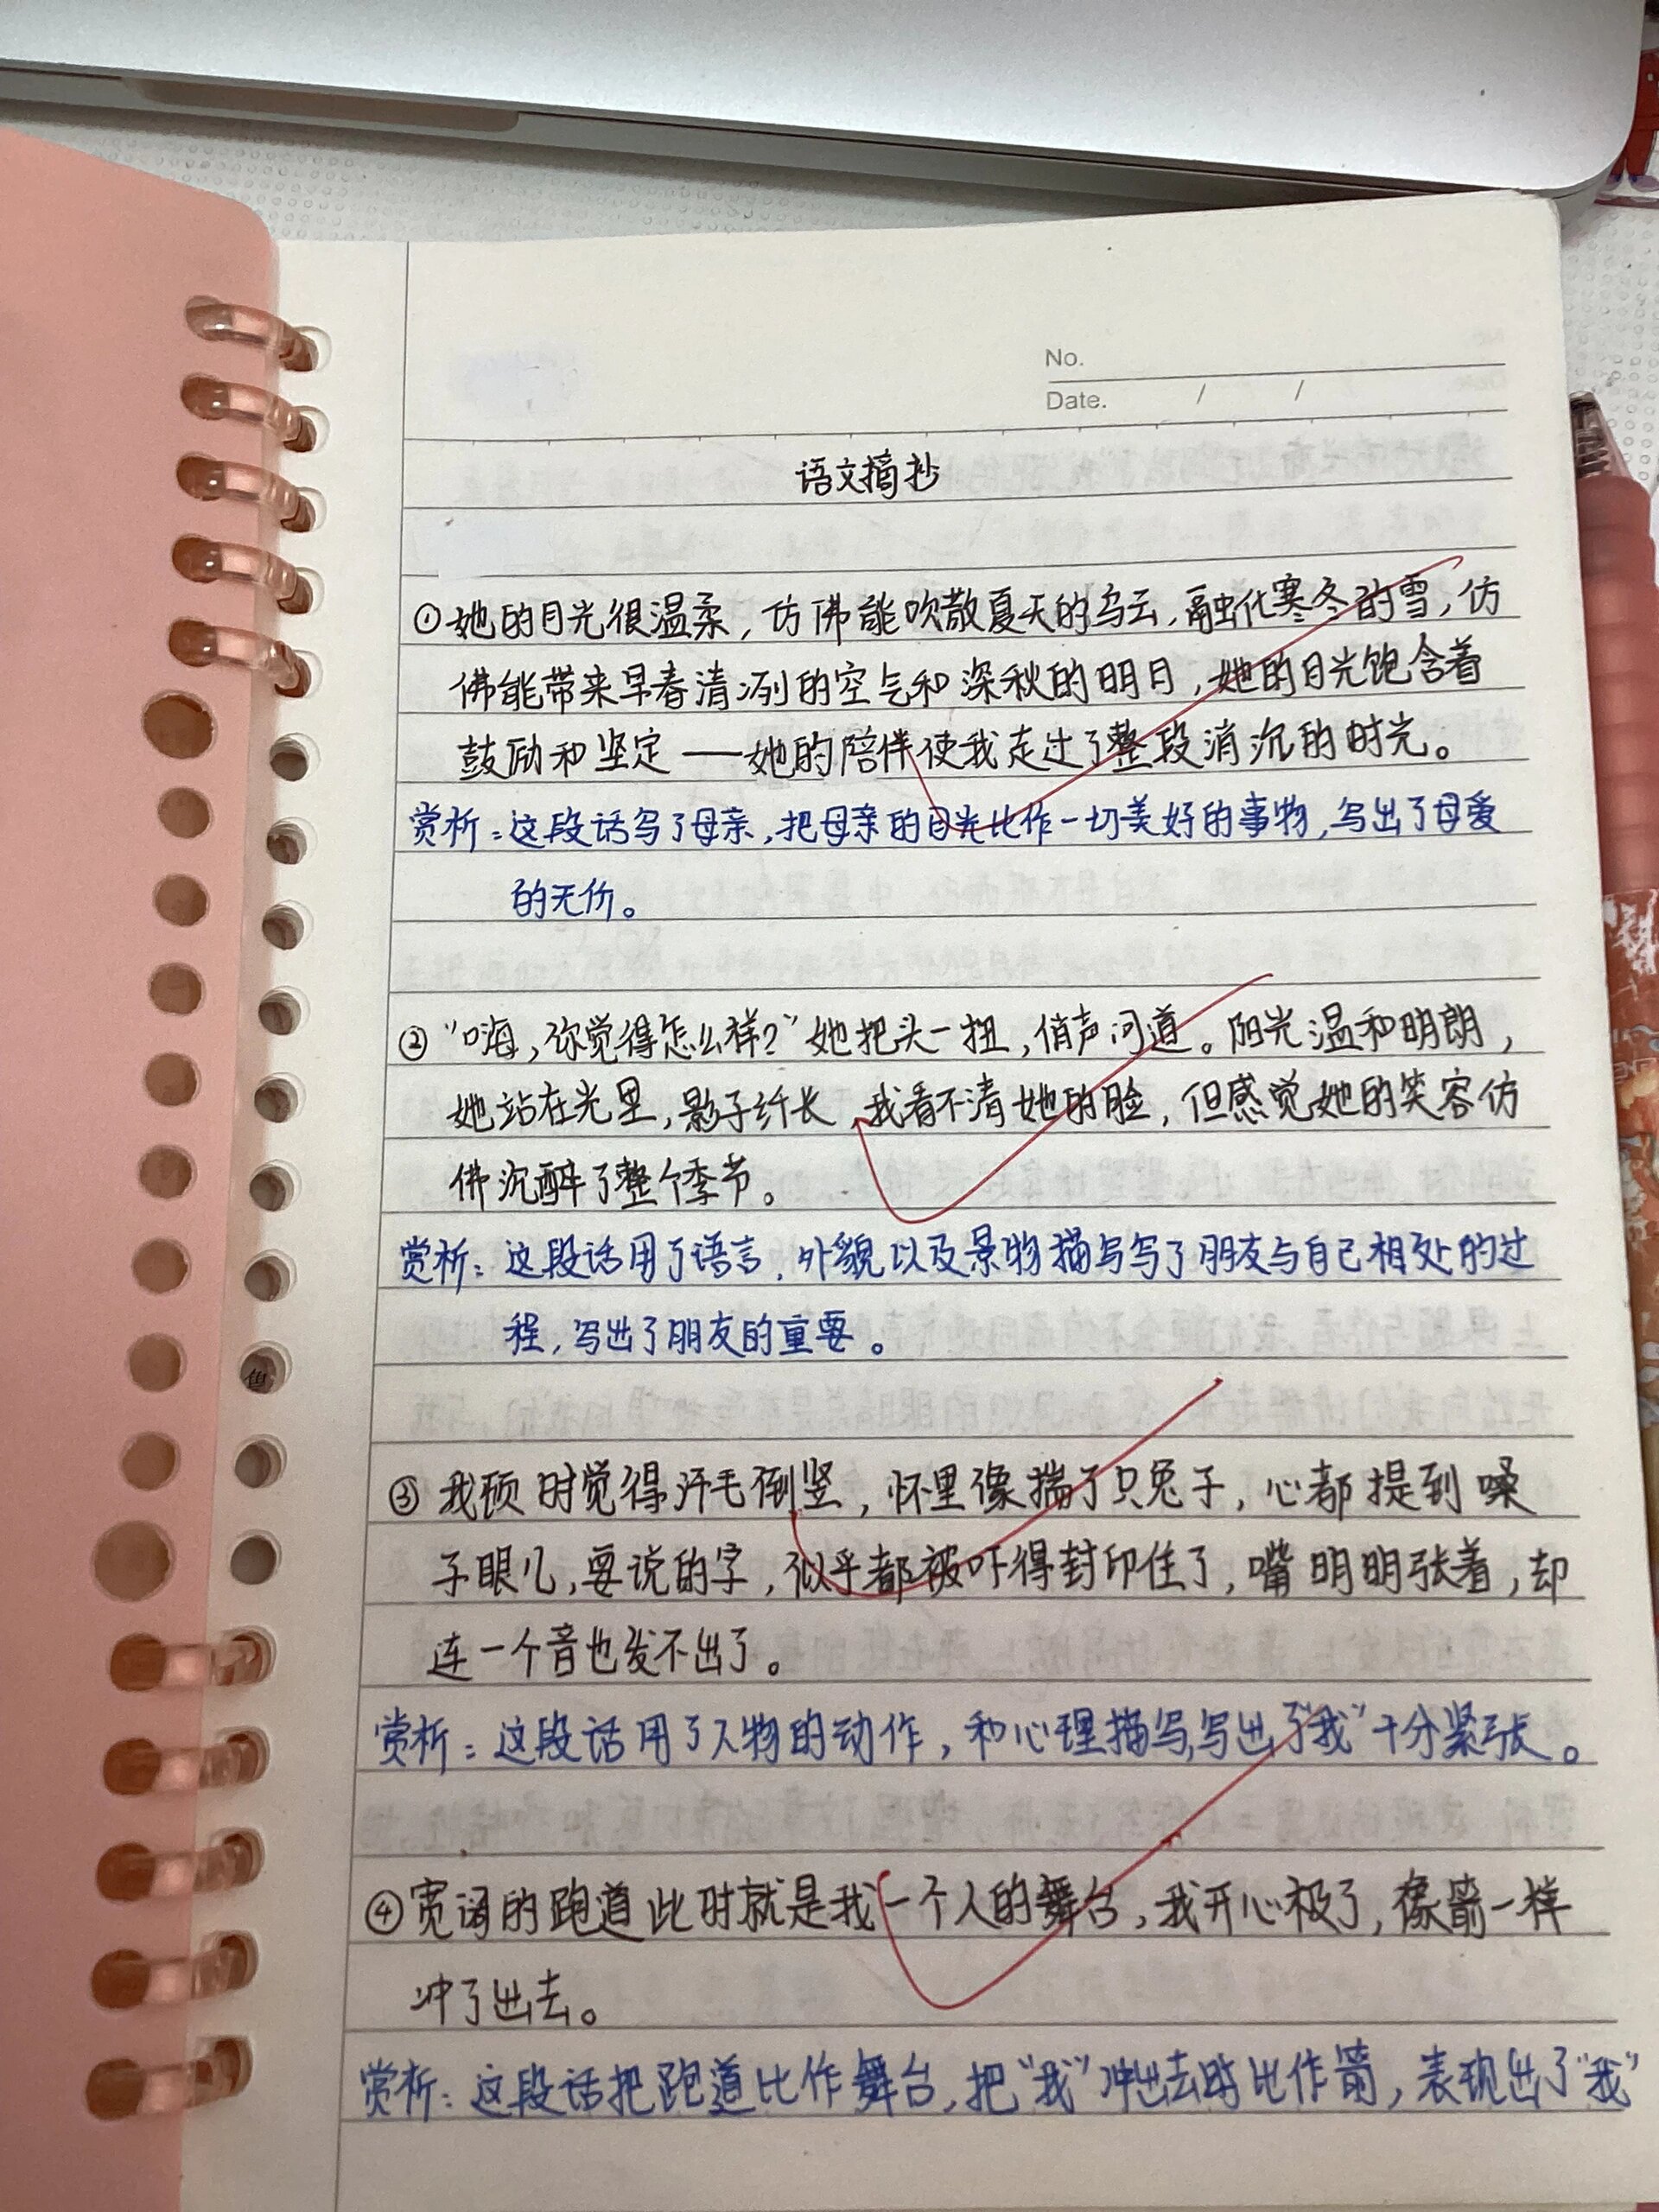 No.
Date. / /
语文摘抄
①她的目光很温柔，仿佛能吹散夏天的乌云，融化寒冬的雪，仿
佛能带来早春清冽的空气和深秋的明月，她的目光饱含着
鼓励和坚定——她的陪伴使我走过了整段消沉的时光。
赏析：这段话写了母亲，把母亲的目光比作一切美好的事物，写出了母爱
的无价。
②“嗨，你觉得怎么样？”她把头一扭，俏声问道。阳光温和明朗，
她站在光里，影子纤长，我看不清她的脸，但感觉她的笑容仿
佛沉醉了整个季节。
赏析：这段话用了语言，外貌以及景物描写写了朋友与自己相处的过
程，写出了朋友的重要。
③我顿时觉得汗毛倒竖，怀里像揣了只兔子，心都提到嗓
子眼儿，要说的字，似乎都被吓得封印住了，嘴明明张着，却
连一个音也发不出了。
赏析：这段话用了人物的动作，和心理描写，写出了“我”十分紧张。
④宽阔的跑道此时就是我一个人的舞台，我开心极了，像箭一样
冲了出去。
赏析：这段话把跑道比作舞台，把“我”冲出去时比作箭，表现出了“我”